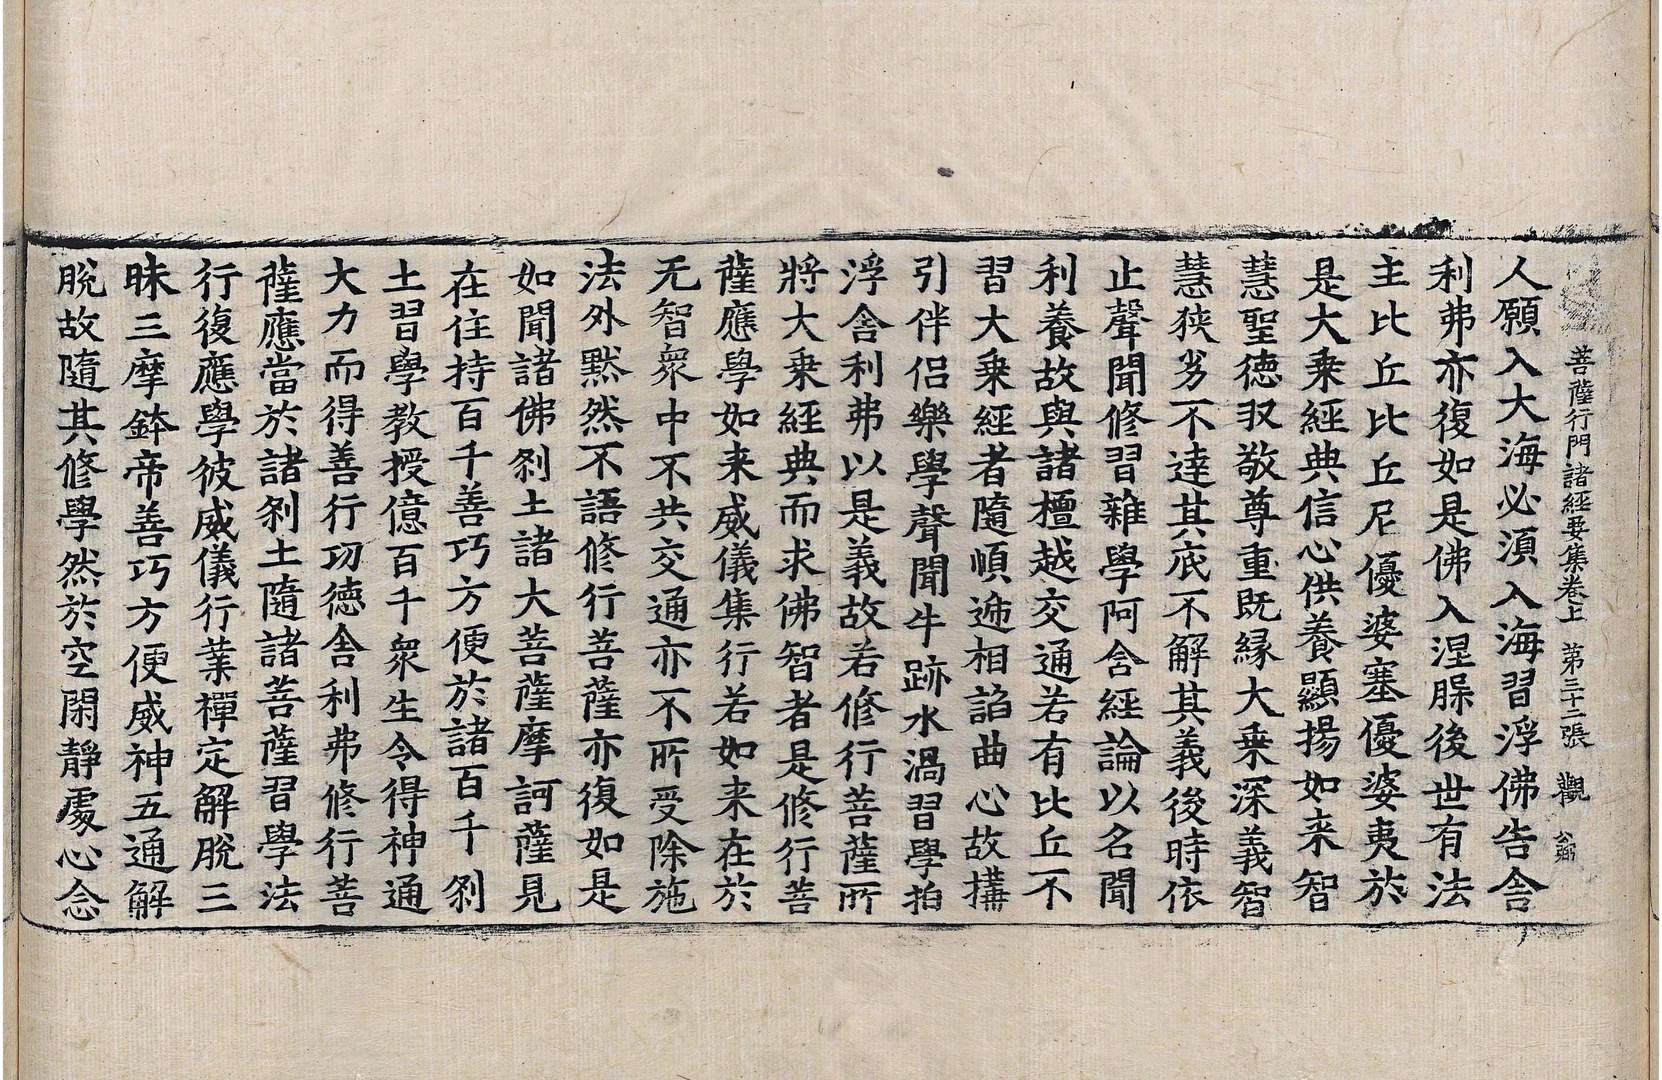 菩薩行門諸經要集卷上　第三十二張　觀
人願入大海必湏入海習浮佛告舍
利弗亦復如是佛入涅槃後世有法
主比丘比丘尼優婆塞優婆夷於
是大乗經典信心供養顯揚如来智
慧聖德㕝敬尊重既縁大乗深義智
慧狭劣不達其底不解其義後時依
止聲聞修習雜學阿含經論以名聞
利養故與諸檀越交通若有比丘不
習大乗經者隨順逓相諂曲心故搆
引伴侣樂學聲聞牛跡水渦習學拍
浮舍利弗以是義故若修行菩薩所
將大乗經典而求佛智者是修行菩
薩應學如来威儀集行若如来在於
无智衆中不共交通亦不所受除施
法外黙然不語修行菩薩亦復如是
如聞諸佛刹土諸大菩薩摩訶薩見
在住持百千善巧方便於諸百千刹
土習學教授億百千衆生令得神通
大力而得善行功德舍利弗修行菩
薩應當於諸刹土隨諸菩薩習學法
行復應學彼威儀行業禪定解脫三
昧三摩鉢帝善巧方便威神五通解
脫故隨其修學然於空閑靜處心念